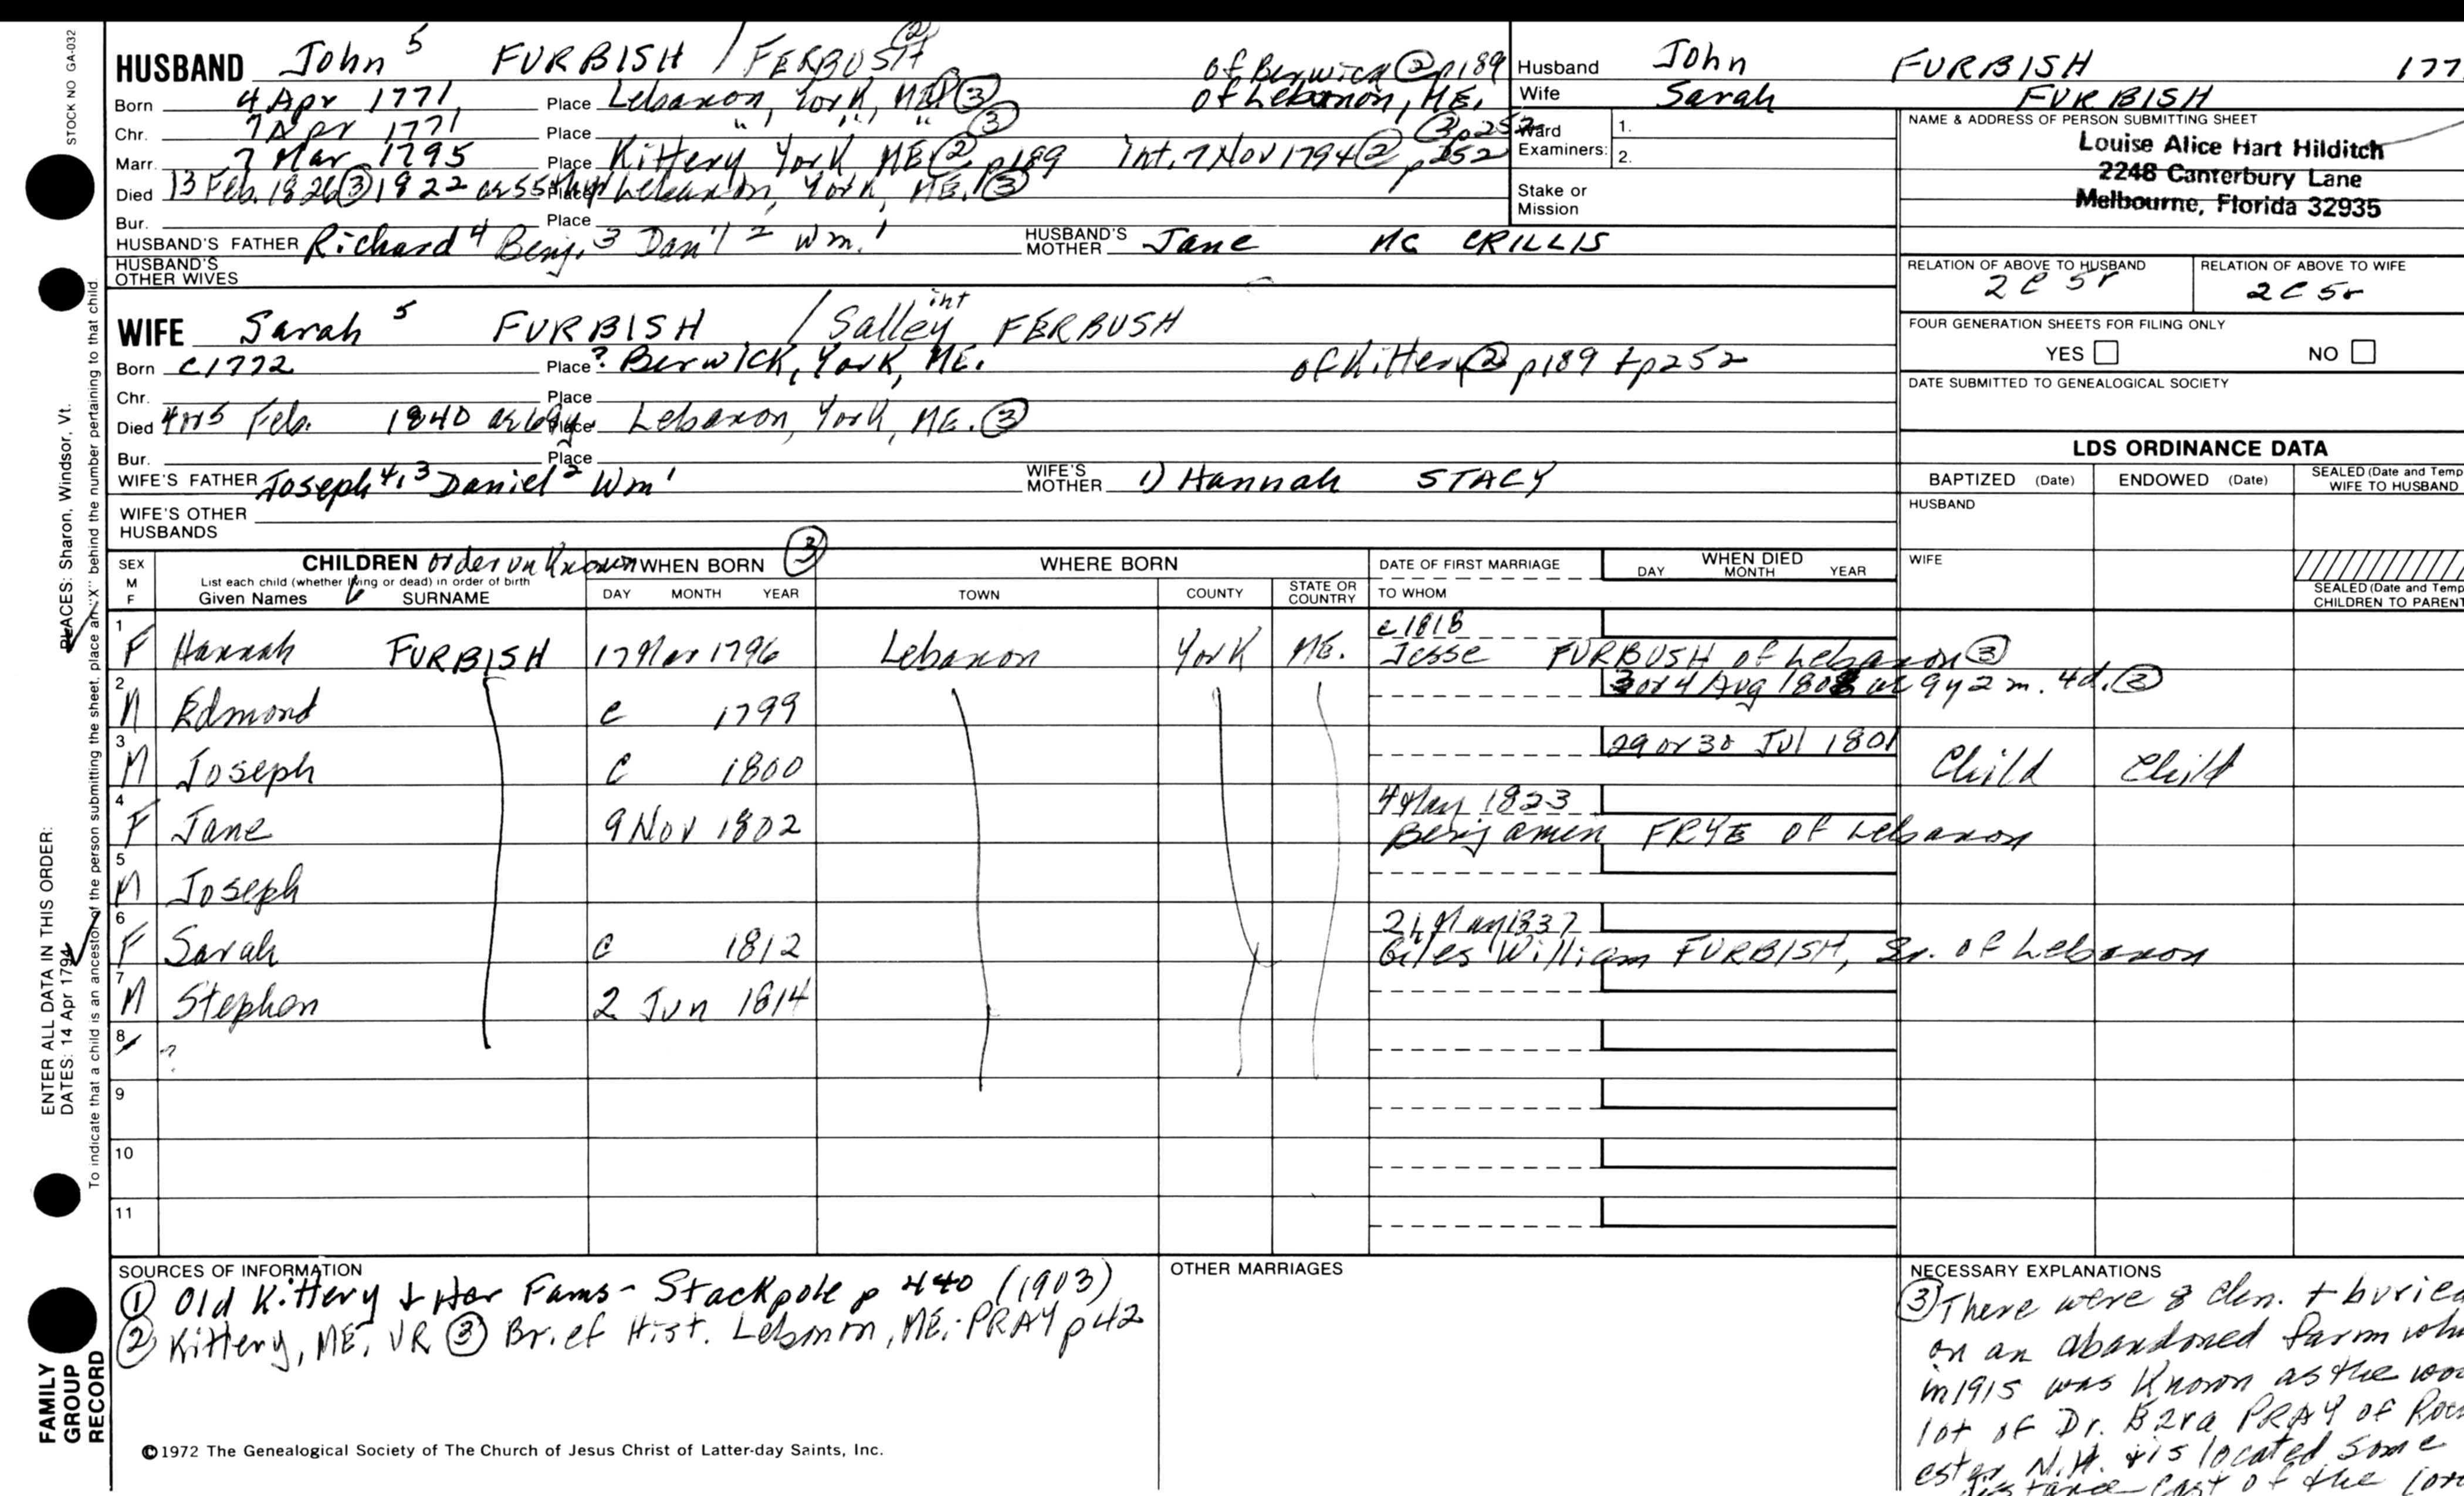 STOCK NO GA-032
HUSBAND John 5 FURBISH / FERBUSH (2) of Berwick (2) p189
Born 4 Apr 1771 Place Lebanon, York, ME (3) of Lebanon, ME.
Chr. 7 Apr 1771 Place " " " (3)
Marr. 7 Mar 1795 Place Kittery York ME (2) p189 Int. 7 Nov 1794 (2) p252
(3) p252
Died 13 Feb. 1826 (3) 1822 Place Lebanon, York, ME. (3)
Bur. Place
HUSBAND'S FATHER Richard 4 Benj. 3 Dan'l 2 Wm. 1 HUSBAND'S MOTHER Jane MC CRILLIS
HUSBAND'S OTHER WIVES
WIFE Sarah 5 FURBISH / Salley int FERBUSH
Born c1772 Place ? Berwick, York, ME. of Kittery (2) p189 + p252
Chr. Place
Died 4 or 5 Feb. 1840 Place Lebanon, York, ME. (3)
Bur. Place
WIFE'S FATHER Joseph 4, 3 Daniel 2 Wm 1 WIFE'S MOTHER 1) Hannah STACY
WIFE'S OTHER HUSBANDS
Husband John FURBISH 177
Wife Sarah FURBISH
Ward Examiners: 1.
2.
Stake or Mission
NAME & ADDRESS OF PERSON SUBMITTING SHEET
Louise Alice Hart Hilditch
2248 Canterbury Lane
Melbourne, Florida 32935
RELATION OF ABOVE TO HUSBAND RELATION OF ABOVE TO WIFE
2C 5r 2C 5r
FOUR GENERATION SHEETS FOR FILING ONLY
YES NO
DATE SUBMITTED TO GENEALOGICAL SOCIETY
LDS ORDINANCE DATA
BAPTIZED (Date) ENDOWED (Date) SEALED (Date and Temp
WIFE TO HUSBAND
HUSBAND
WIFE
SEALED (Date and Temp
CHILDREN TO PARENT
SEX M F CHILDREN order unknown WHEN BORN (3) WHERE BORN DATE OF FIRST MARRIAGE WHEN DIED
List each child (whether living or dead) in order of birth
Given Names SURNAME DAY MONTH YEAR TOWN COUNTY STATE OR COUNTRY TO WHOM DAY MONTH YEAR
c1818
1 F Hannah FURBISH 17 Mar 1796 Lebanon York ME. Jesse FURBUSH of Lebanon (3)
3 or 4 Aug 1808 ae 9y 2m. 4d. (3)
2 M Edmond c 1799
29 or 30 Jul 1801
3 M Joseph c 1800 Child Child
4 May 1823
4 F Jane 9 Nov 1802 Benjamen FRYE of Lebanon
5 M Joseph
1837
6 F Sarah c 1812 Giles William FURBISH, Sr. of Lebanon
7 M Stephen 2 Jun 1814
8 ?
9
10
11
SOURCES OF INFORMATION
(1) Old Kittery & Her Fams - Stackpole p 440 (1903)
(2) Kittery, ME, VR (3) Brief Hist. Lebanon, ME. - PRAY p42
OTHER MARRIAGES
NECESSARY EXPLANATIONS
(3) There were 8 chn. + buried
on an abandoned farm
in 1915 was known as the
lot of Dr. Ezra PRAY of
ester N.H. + is located some
distance east of the
©1972 The Genealogical Society of The Church of Jesus Christ of Latter-day Saints, Inc.
FAMILY
GROUP
RECORD
ENTER ALL DATA IN THIS ORDER:
DATES: 14 Apr 1794
PLACES: Sharon, Windsor, Vt.
To indicate that a child is an ancestor of the person submitting the sheet, place an "X" behind the number pertaining to that child.